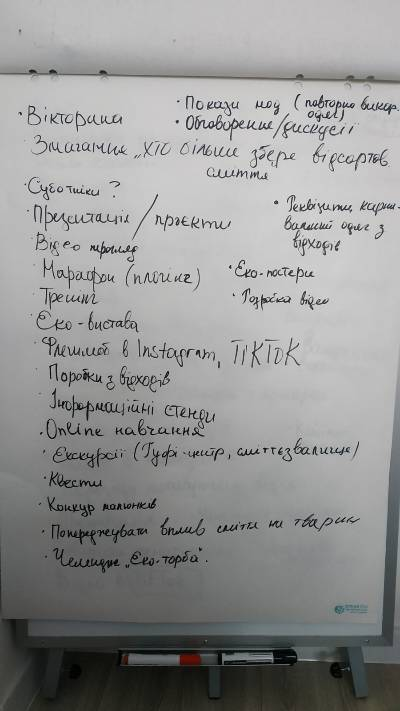 · Вікторина
· Покази мод (повторно викор. одяг)
· Обговорення/дискусії
Змагання „Хто більше збере відсортов. сміття
· Суботніки?
· Презентація/проєкти
· Реквізити, карнавальний одяг з відходів
· Відео перегляд
· Марафон (плогінг)
· Еко-постери
· Тренінг
· Розробка відео
· Еко-вистава
· Флешмоб в Instagram, TikTok
· Поробки з відходів
· Інформаційні стенди
· Online навчання
· Екскурсії (Гуфі-центр, сміттєзвалище)
· Квести
· Конкур малюнків
· Попереджувати вплив сміття на тварин
· Челендж „Еко-торба".